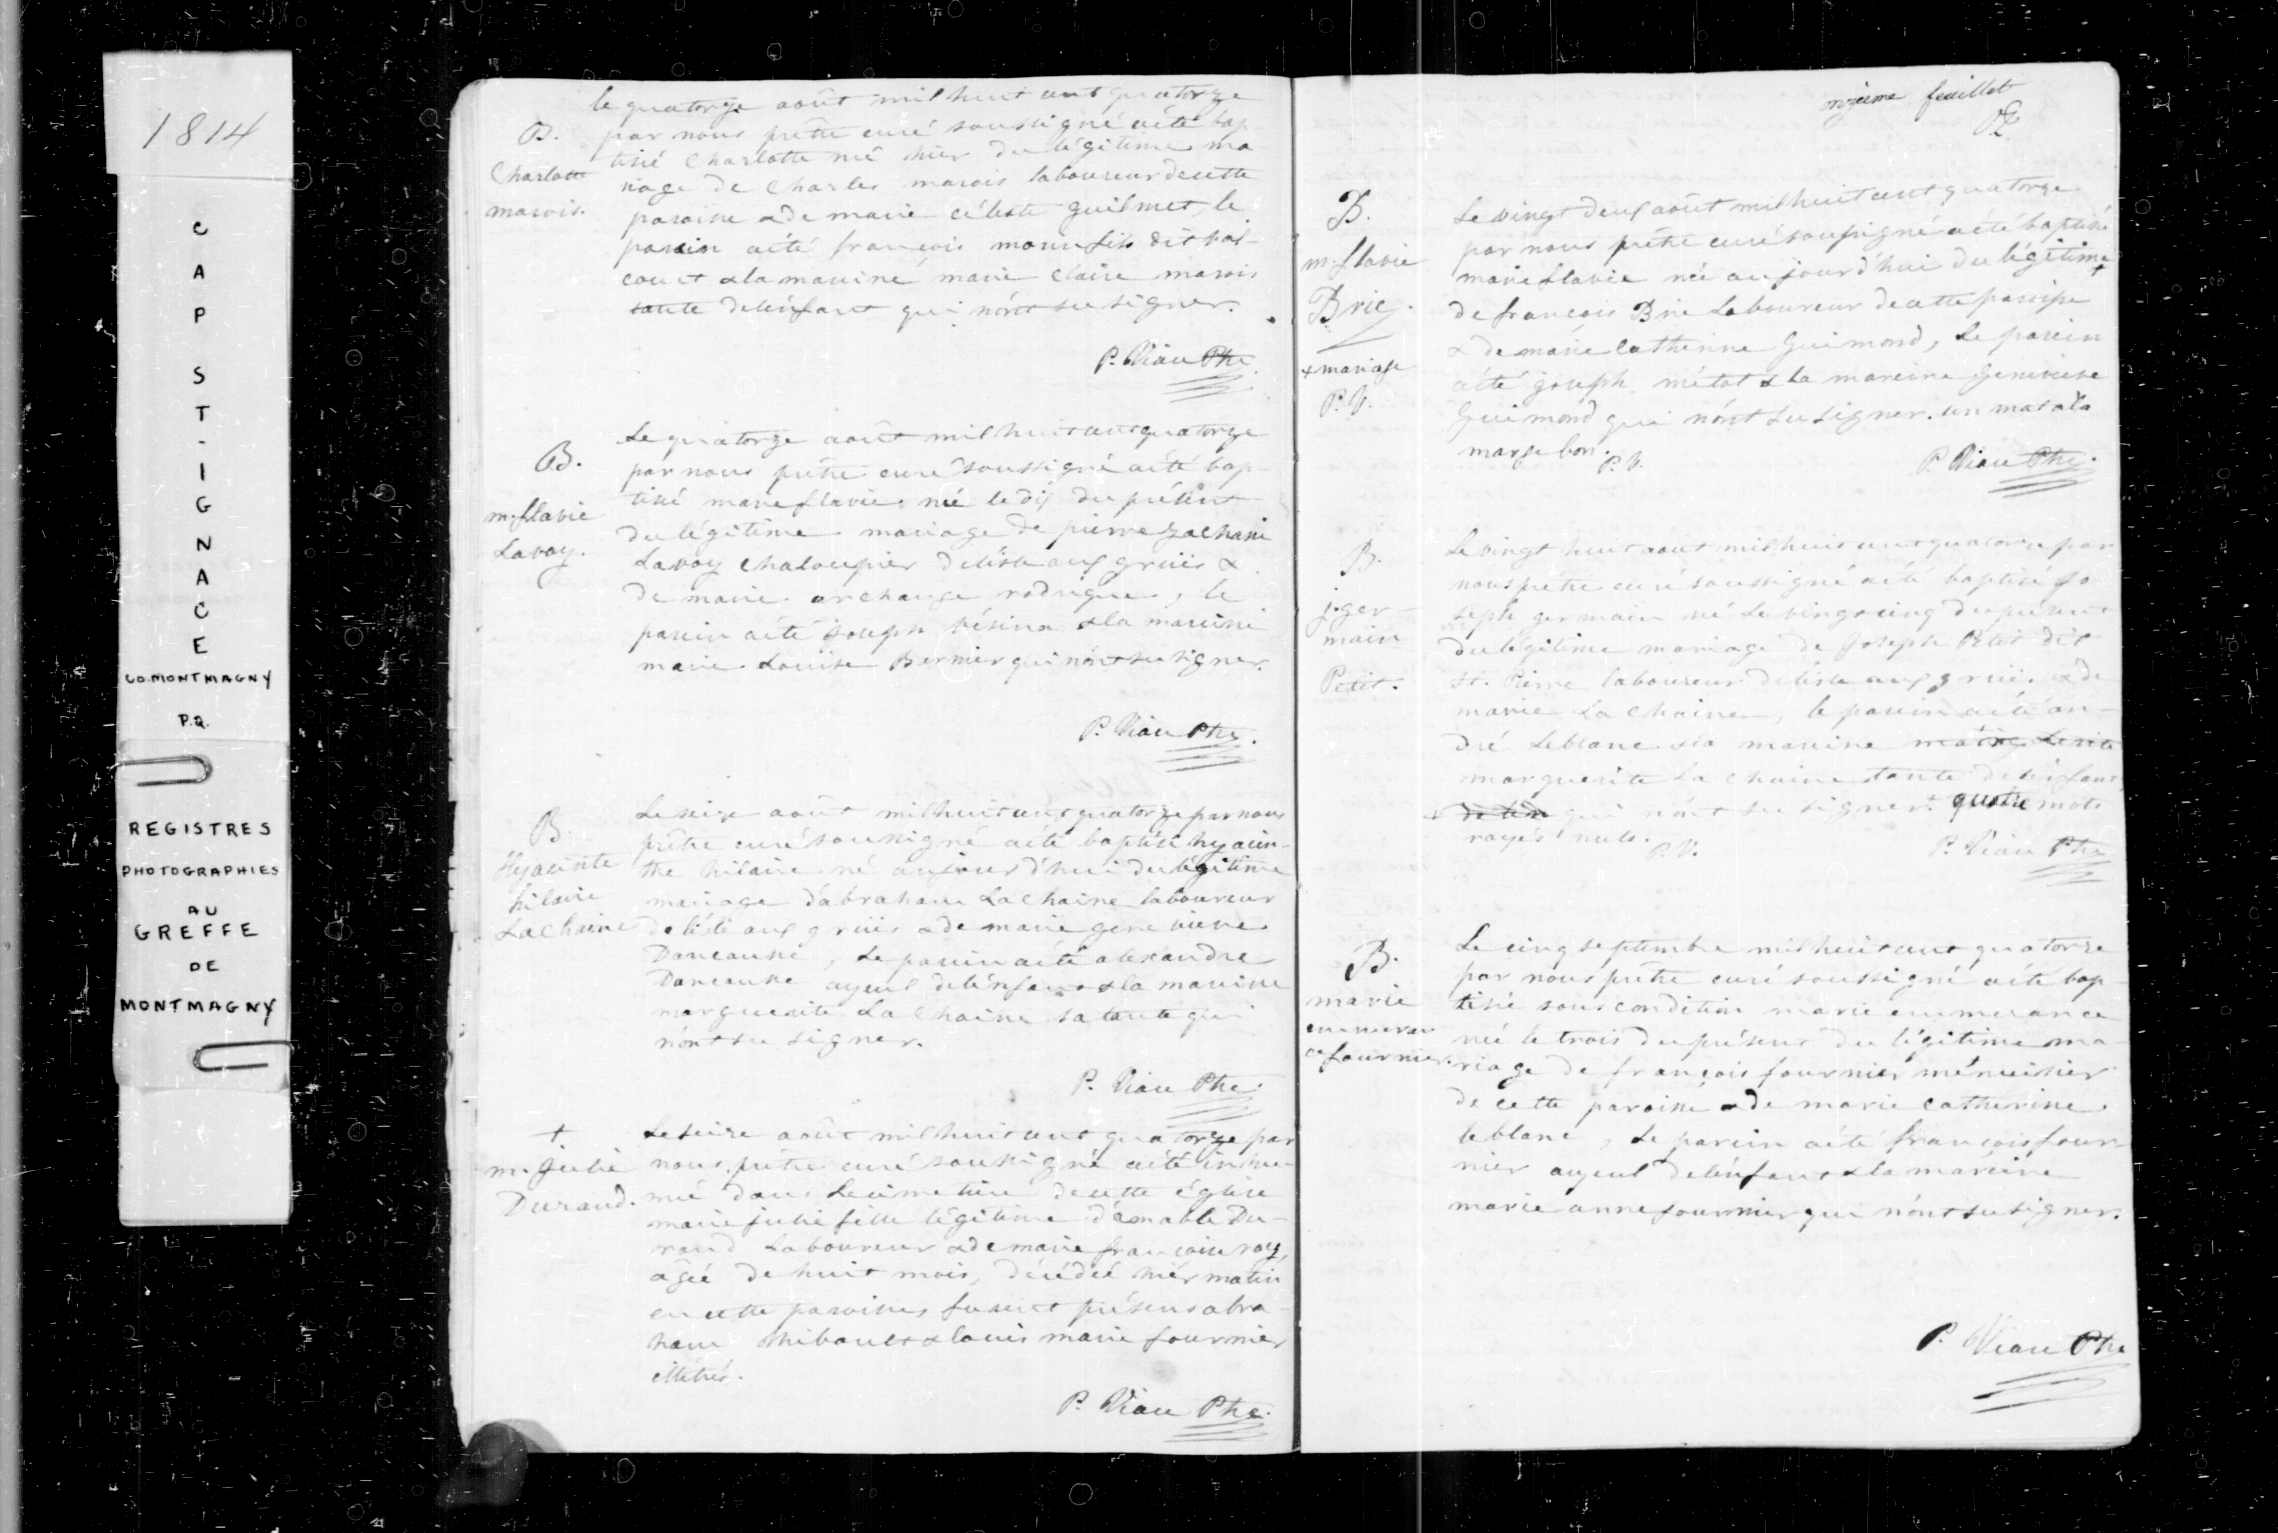 1814
CAP ST-IGNACE
CO. MONTMAGNY
P.Q.
REGISTRES
PHOTOGRAPHIES
AU
GREFFE
DE
MONTMAGNY
B.
Charlotte
marois.
le quatorze août mil huit cent quatorze
par nous prêtre curé soussigné a été bap
tisé Charlotte né hier du légitime ma
riage de Charles marois laboureur de cette
paroisse & de marie céleste guilmet, le
parain a été françois
& la maraine marie claire marois
tante de l'énfant qui n'ónt su signer.
P. Viau Ptre
B.
m. flavie
Lavoy.
Le quatorze août mil huit cent quatorze
par nous prêtre curé soussigné a été bap
tisé marie flavie, né le dix du présent
du légitime mariage de pierre zacharie
Lavoy chaloupier de l'isle aux grues &
de marie archange rodrigue, le
parain a été joseph vésina & la maraine
marie Louise Bernier qui n'ónt su signer.
P. Viau Ptre.
B
Hyacinte
hilaire
Lachaine
Le seize août mil huit cent quatorze par nous
prêtre curé soussigné a été baptisé hyacin-
the hilaire né aujourd'hui du légitime
mariage d'abraham Lachaine laboureur
de l'isle aux grues & de marie geneviève
Daneause, Le parain a été alexandre
Daneause ayeul de l'énfant & la maraine
marguerite Lachaine sa tante qui
n'ónt su signer.
P. Viau Ptre
+
m. julie
Durand.
Le seize août mil huit cent quatorze par
nous prêtre curé soussigné a été inhu-
mé dans le cimetière de cette église
marie julie fille légitime d'amable Du-
rand Laboureur & de marie françoise roy,
agée de huit mois, décédée hiér matin
en cette paroisse, furent présens abra-
ham thibault & louis marie fournier
illétrés.
P. Viau Ptre.
onzieme feuillet
B.
m. flavie
Brie
+ mariage
P. V.
Le vingt deux août mil huit cent quatorze
par nous prêtre curé soussigné a été baptisé
marie flavie née aujourd'hui du légitime +
de françois Brie Laboureur de cette paroisse
& de marie Catherine Guimond, Le parein
a été joseph métot & la mareine genevieve
Guimond qui n'ónt su signer. un mot à la
marge bon.
P. V.
P. Viau Ptre.
B.
j. ger-
main
Petit.
Le vingt huit aout mil huit cent quatorze par
nous prêtre curé soussigné a été baptisé jo
seph germain né le vingt cinq du présent
du légitime mariage de Joseph Petit dit
St. Pierre laboureur de l'isle aux grues & de
marie Lachaine, le parein a été an-
dré Leblanc & la maraine
marguerite Lachaine tante de l'énfant
qui n'ónt su signer. quatre mots
rayés nuls.
P. V.
P. Viau Ptre
B.
marie
emmeran
ce fournier.
Le cinq septembre mil huit cent quatorze
par nous prêtre curé soussigné a été bap
tisé sous condition marie emmerance
née le trois du présent du légitime ma-
riage de françois fournier ménuisier
de cette paroisse & de marie catherine
leblanc, Le parein a été françois four-
nier ayeul de l'énfant & la mareine
marie anne fournier qui n'ónt su signer.
P. Viau Ptre